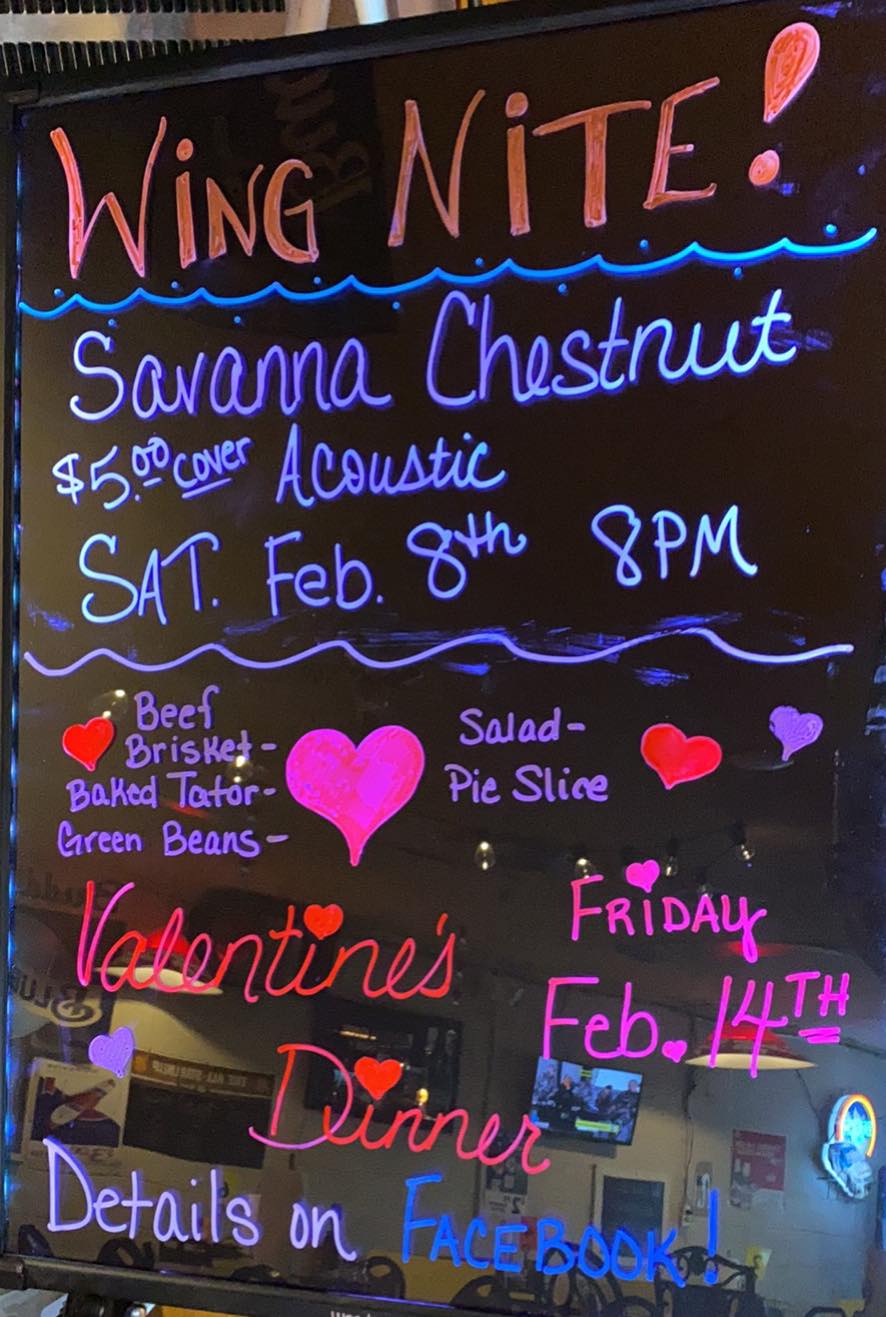 WiNG NiTE!
Savanna Chestnut
$5.00 cover Acoustic
SAT. Feb. 8th 8PM
Beef
Brisket-
Baked Tator-
Green Beans-
Salad-
Pie Slice
Valentine's
Dinner
FRiDAY
Feb. 14TH
Details on FACEBOOK!